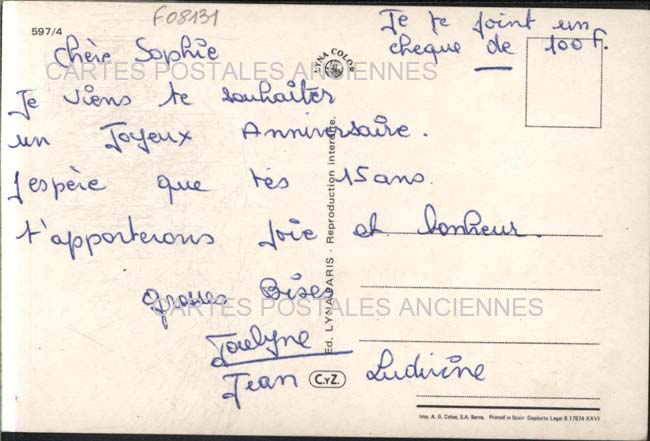 F08131
Je te joint un
cheque de 100 F.
597/4
chère Sophie
LYNA COLOR
CARTES POSTALES ANCIENNES
Je viens te souhaiter
un Joyeux Anniversaire.
J'espère que tes 15 ans
t'apporterons joie et bonheur.
grosses Bises
CARTES POSTALES ANCIENNES
Joelyne
Jean Ludivine
Ed. LYNA-PARIS - Reproduction interdite.
C.YZ.
Imp. A. G. Cobas, S.A. Barna. Printed in Spain Depósito Legal B. 17874-XXVI